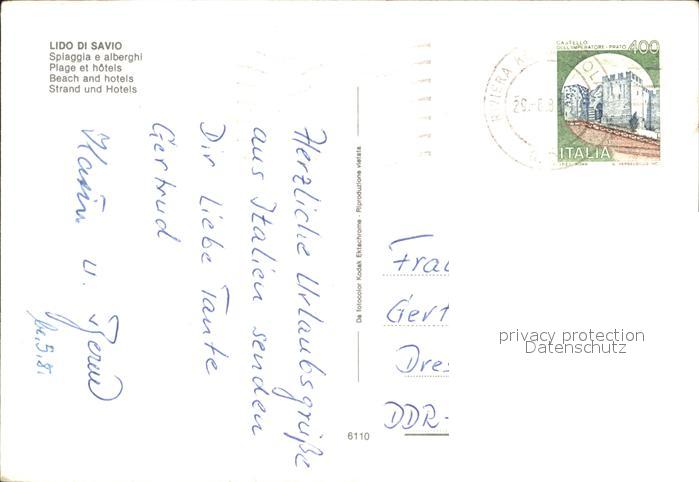 LIDO DI SAVIO
Spiaggia e alberghi
Plage et hôtels
Beach and hotels
Strand und Hotels
Herzliche Urlaubsgrüße
aus Italien senden
Dir Liebe Tante
Gertrud
u. Bernd
Da fotocolor Kodak Ektachrome - Riproduzione vietata
6110
CASTELLO
DELL'IMPERATORE - PRATO
400
ITALIA
RIVIERA
Frau
Gert
Dres
DDR-
privacy protection
Datenschutz